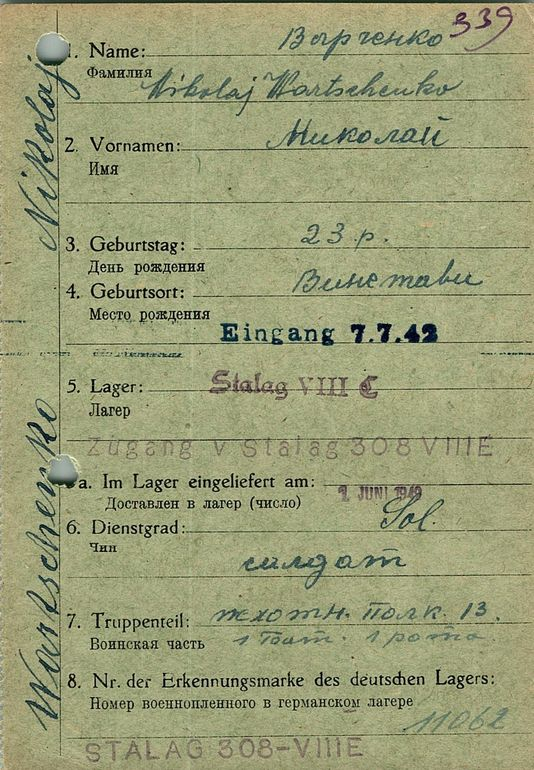 339
1. Name: Варченко
Фамилия
Nikolaj Wartschenko
2. Vornamen: Миколай
Имя
3. Geburtstag: 23 р.
День рождения
4. Geburtsort: Винетави
Место рождения
Eingang 7.7.42
5. Lager: Stalag VIII C
Лагер
Zugang v Stalag 308 VIIIE
a. Im Lager eingeliefert am:
Доставлен в лагер (число)
JUNI
6. Dienstgrad: Sol.
Чин
силдат
7. Truppenteil: полк. 13.
Воинская часть 1 бат. 1 рота
8. Nr. der Erkennungsmarke des deutschen Lagers:
Номер военнопленного в германском лагере
11062
STALAG 308-VIIIE
Wartschenko Nikolaj